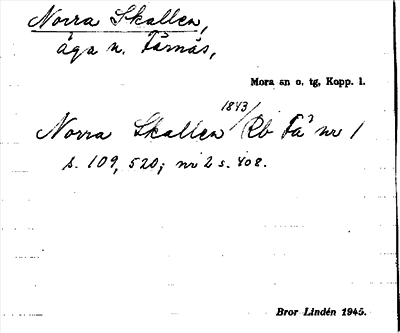 Norra Skallen,
äga n. Färnäs,
Mora sn o. tg, Kopp. l.
Norra Skallen 1843/Rb Fä nr 1
s. 109, 520; nr 2 s. 408.
Bror Lindén 1945.